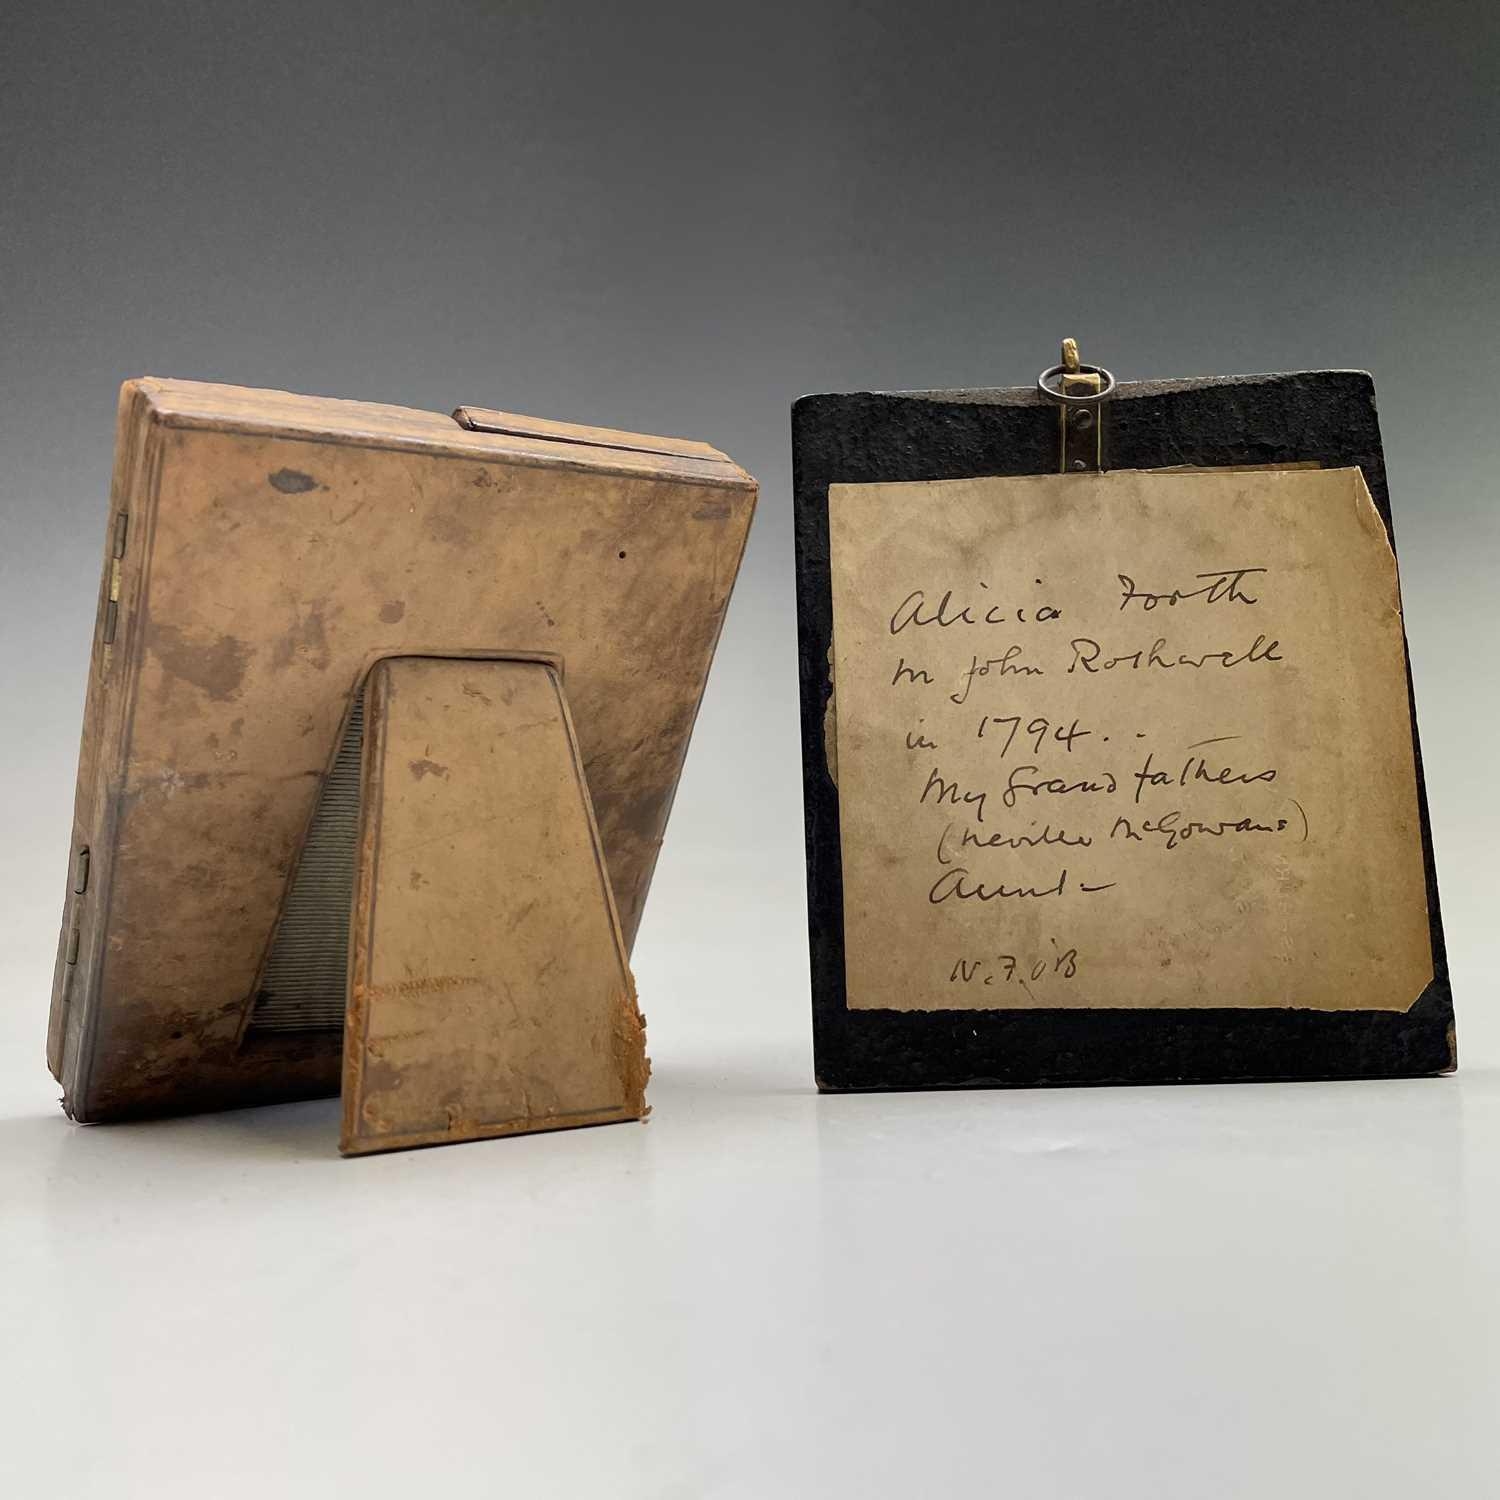 Alicia Forth
m John Rothwell
in 1794. .
My Grandfathers
(Neville McGowans)
Aunt -
N. F. O'B